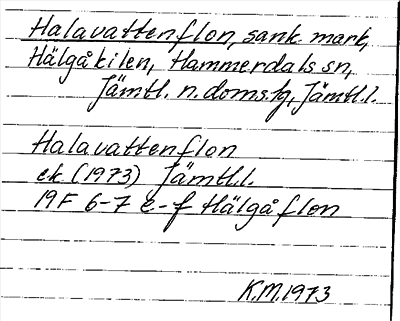 Halavattenflon, sank mark,
Hälgåkilen, Hammerdals sn,
Jämtl. n. doms.hg, Jämtl.l.
Halavattenflon
ek. (1973) Jämtl.l.
19F 6-7 e-f Hälgåflon
K.M. 1973